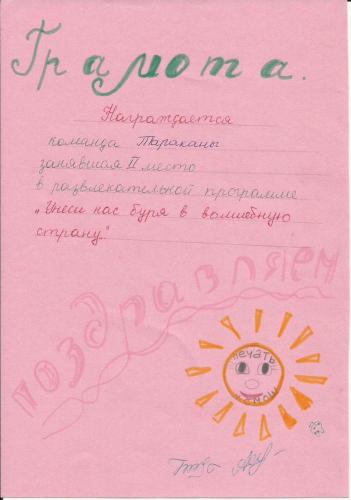 Грамота.
Награждается
команда Тараканы
занявшая II место
в развлекательной программе
„Унеси нас буря в волшебную
страну."
поздравляем
печать